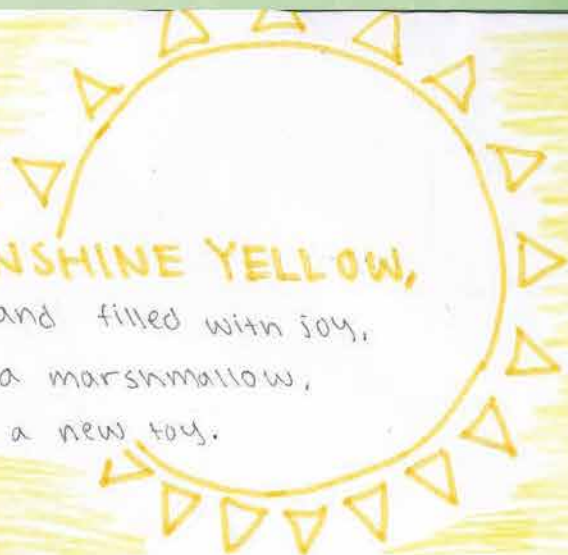 NSHINE YELLOW,
and filled with joy,
a marshmallow,
a new toy.